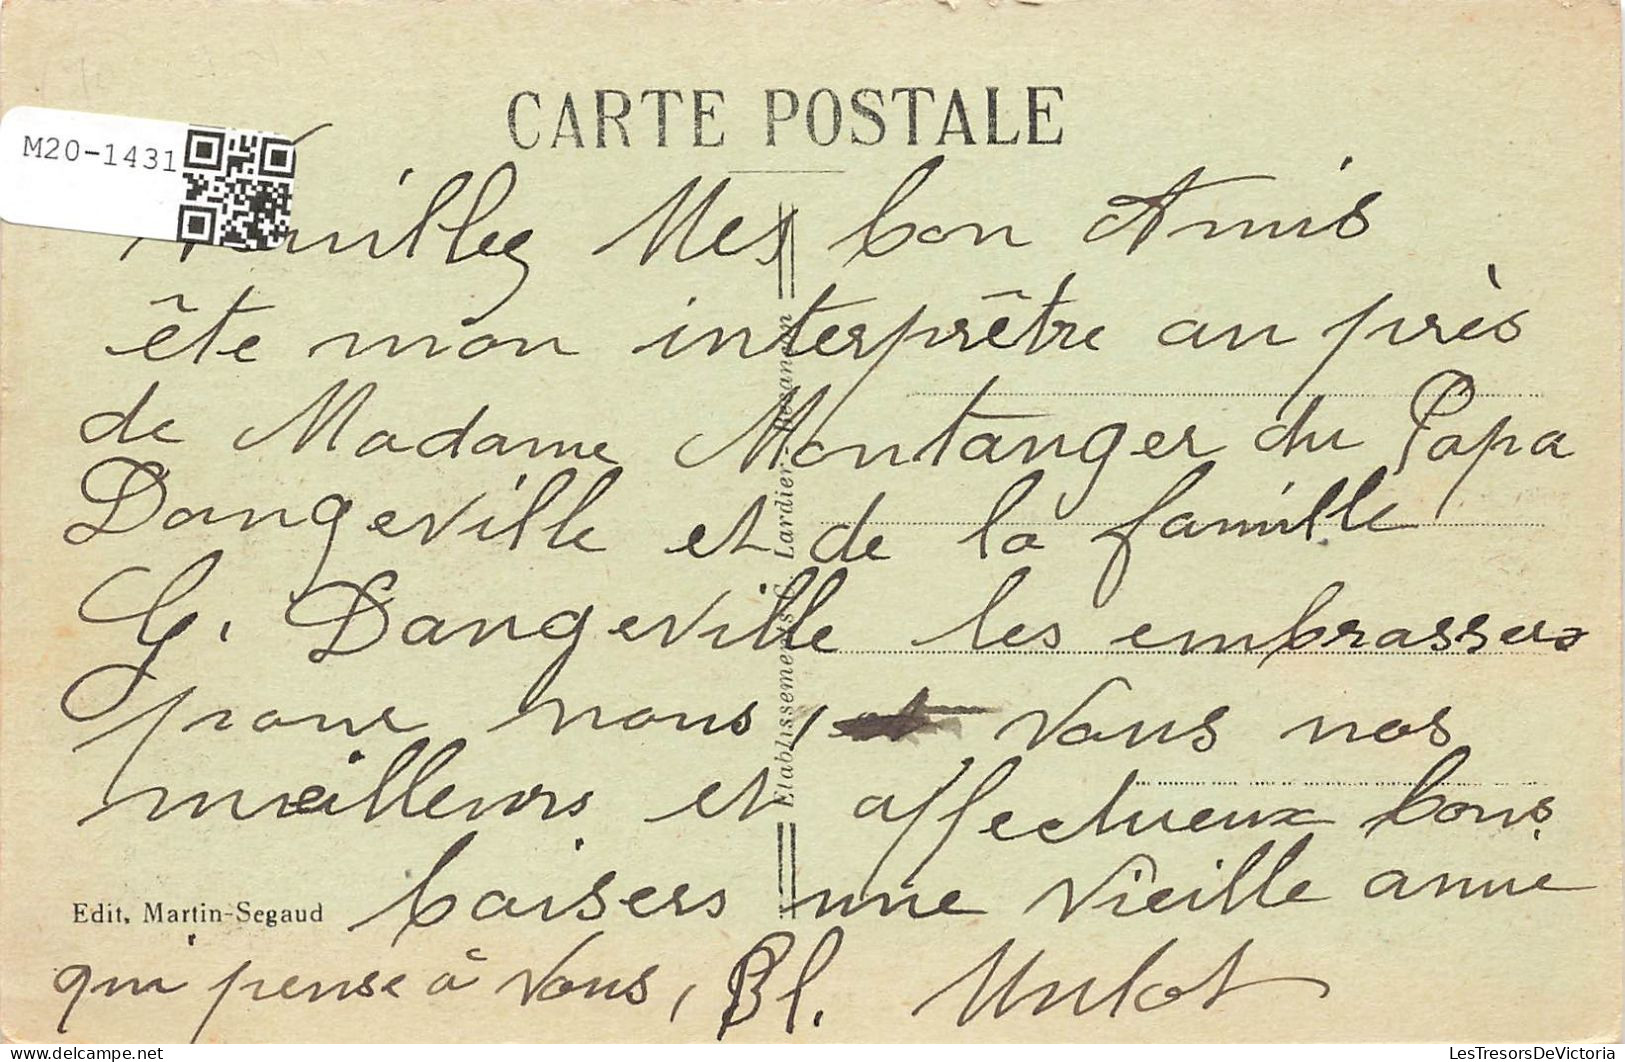 CARTE POSTALE
M20-1431
Veuillez Mes bon Amis
ête mon interprêtre au près
de Madame Montanger du Papa
Dangeville et de la famille
G. Dangeville les embrassers
pour nous, et vous nos
meilleurs et affectueux bons
baisers une vieille amie
qui pense à vous, Bl. Mulot
Edit. Martin-Segaud
Etablissements C. Lardier
LesTresorsDeVictoria